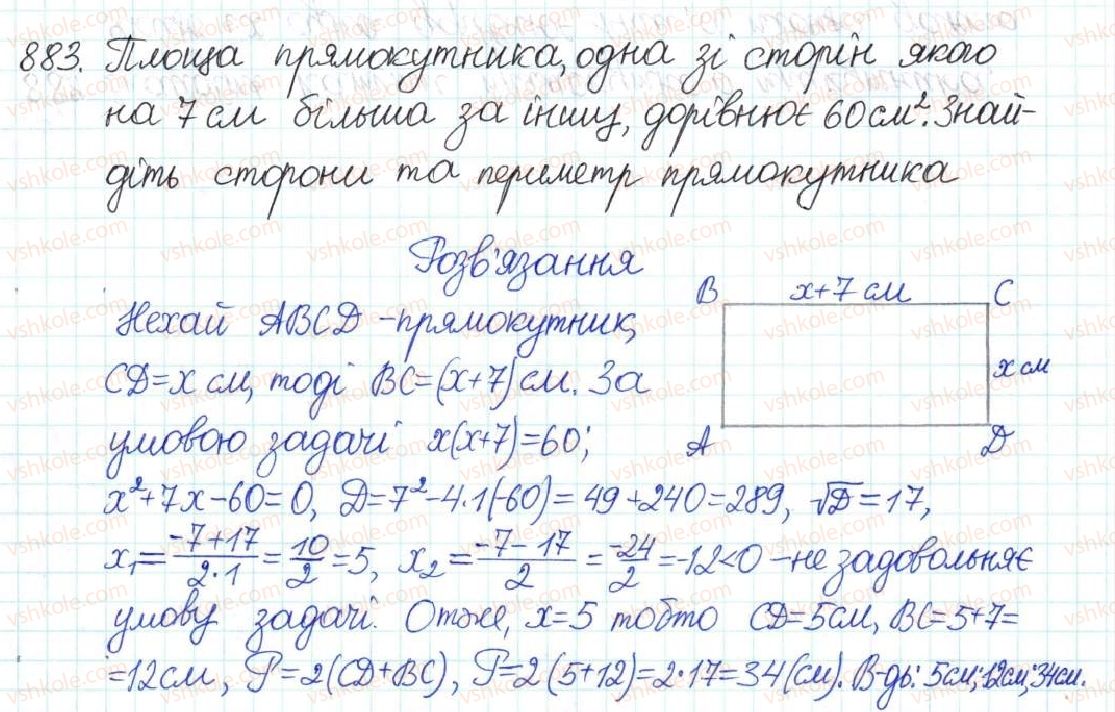 883. Площа прямокутника, одна зі сторін якого
на 7 см більша за іншу, дорівнює 60 см². Знай-
діть сторони та периметр прямокутника
Розв'язання
Нехай ABCD - прямокутник,
CD=x см, тоді BC=(x+7) см. За
умовою задачі x(x+7)=60;
B x+7 см C
x см
A D
x²+7x-60=0, D=7²-4·1(-60)=49+240=289, √D=17,
x₁=(-7+17)/(2·1)=10/2=5, x₂=(-7-17)/2=-24/2=-12<0 - не задовольняє
умову задачі. Отже, x=5 тобто CD=5см, BC=5+7=
=12см, P=2(CD+BC), P=2(5+12)=2·17=34(см). В-дь: 5см; 12см; 34см.
vshkole.com